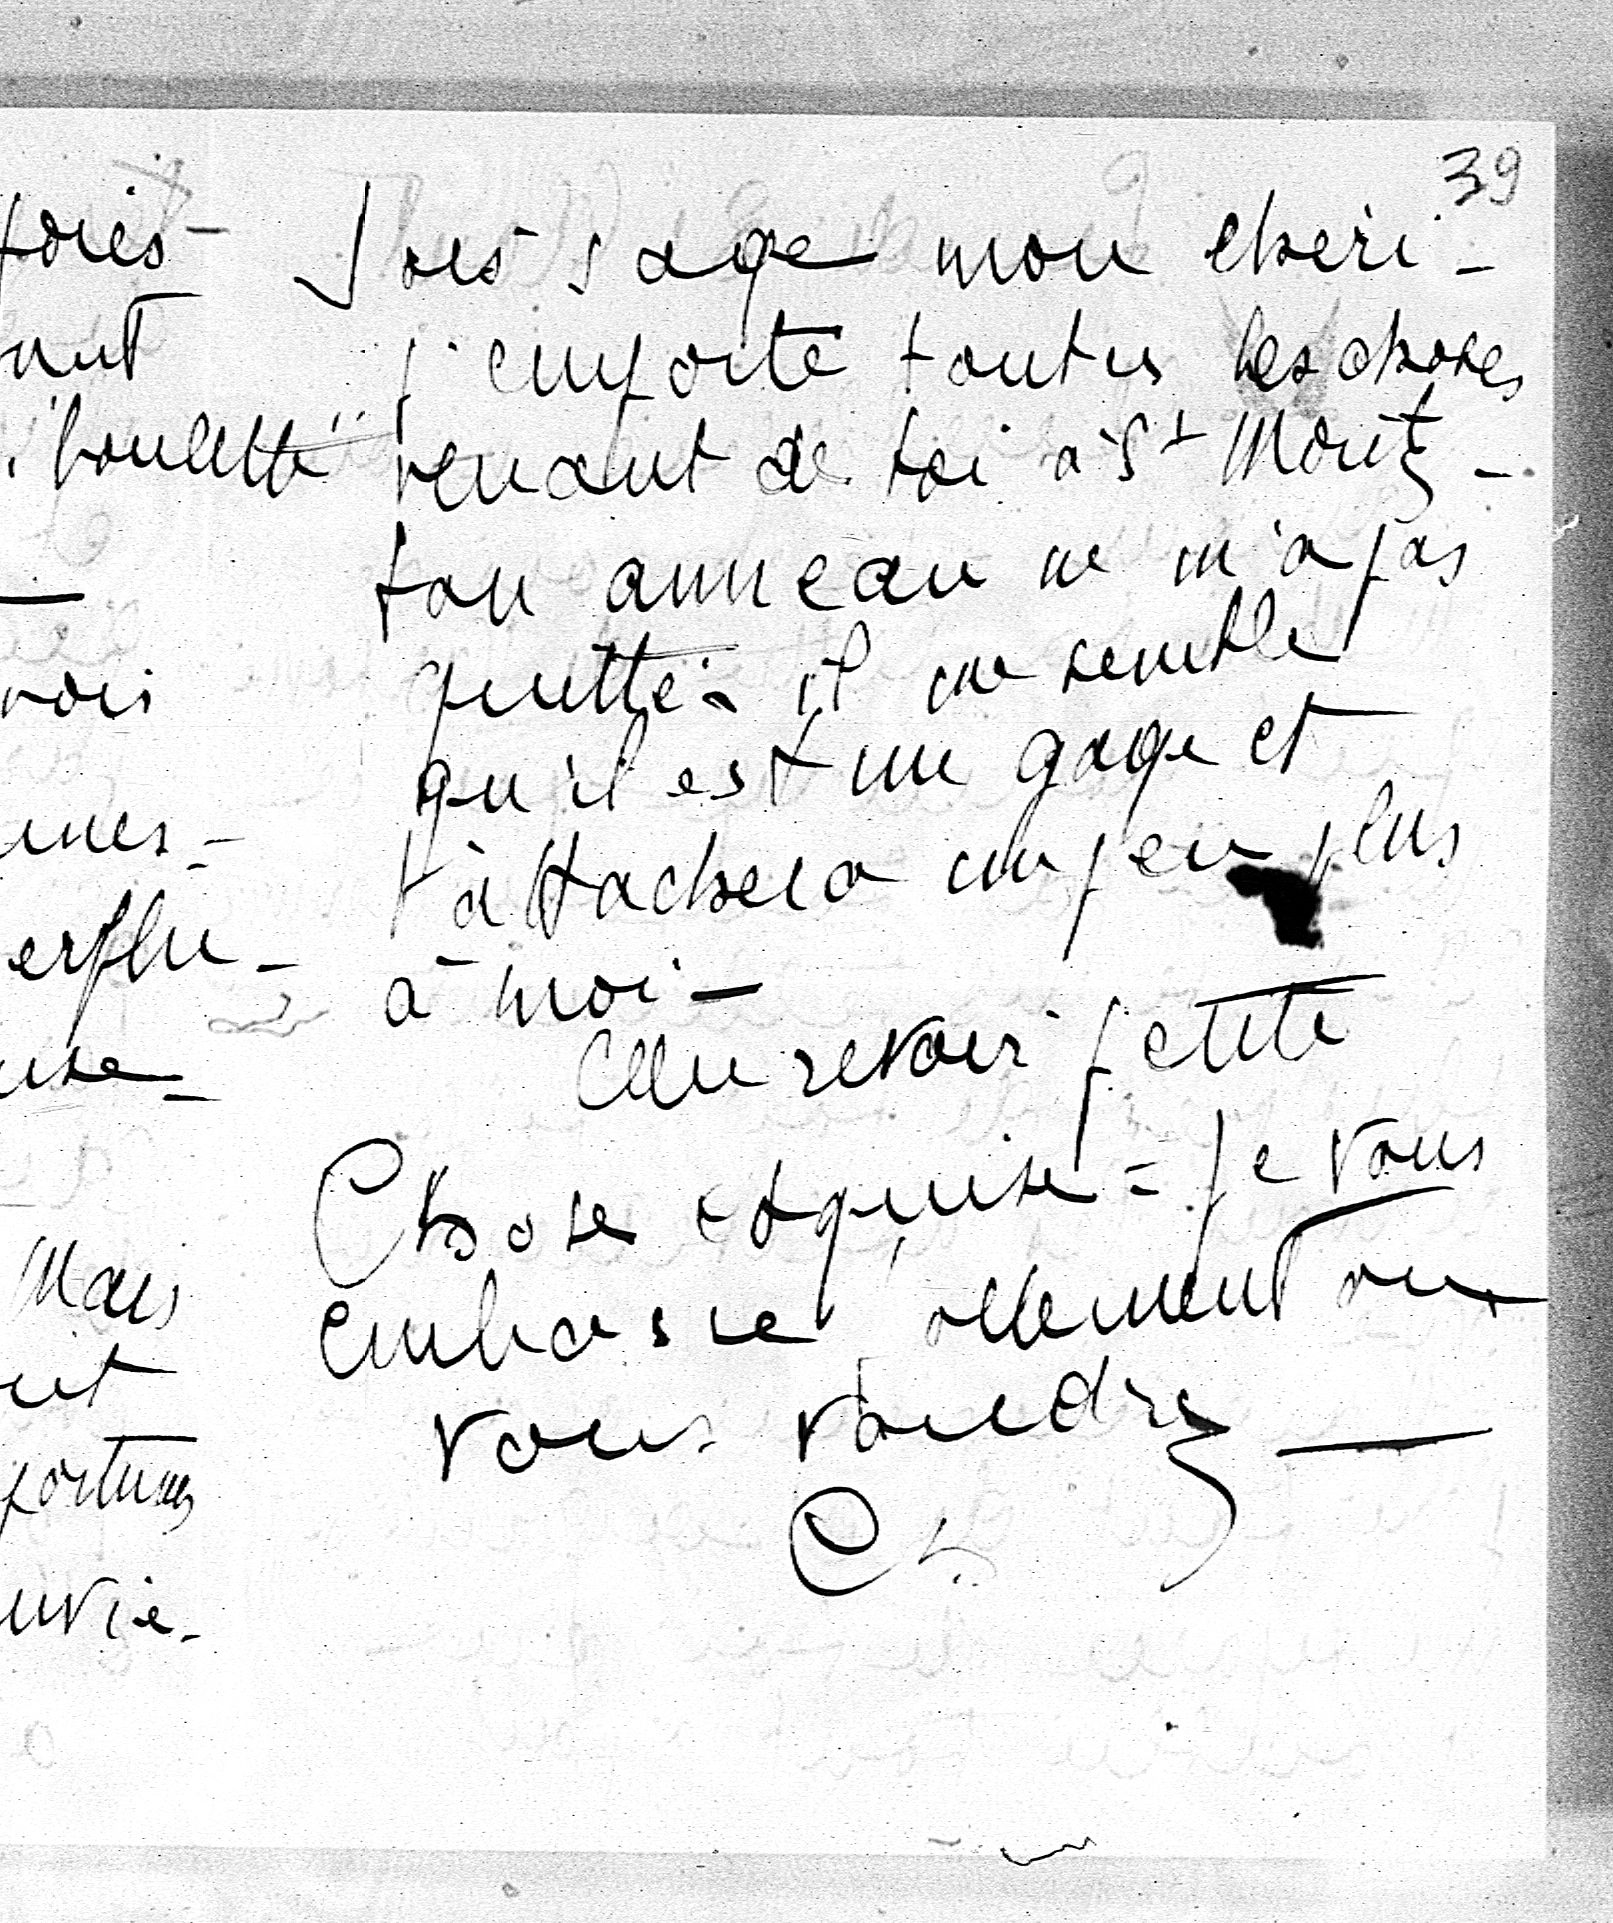 39
Sois sage mon cheri -
j'emporte toutes les choses
venant de toi à St Moritz -
ton anneau ne m'a pas
quitté - il me semble
qu'il est un gage et
t'attachera un peu plus
à moi -
Au revoir petite
Chose exquise - je vous
embrasse follement où
vous voudrez -
Ch.
"boulette"
vois
Mais
envie -